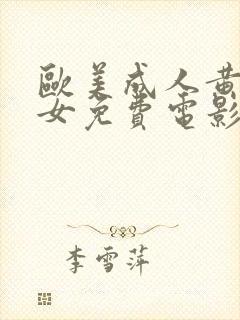 歐美成人黃
女免費電影
李雪萍